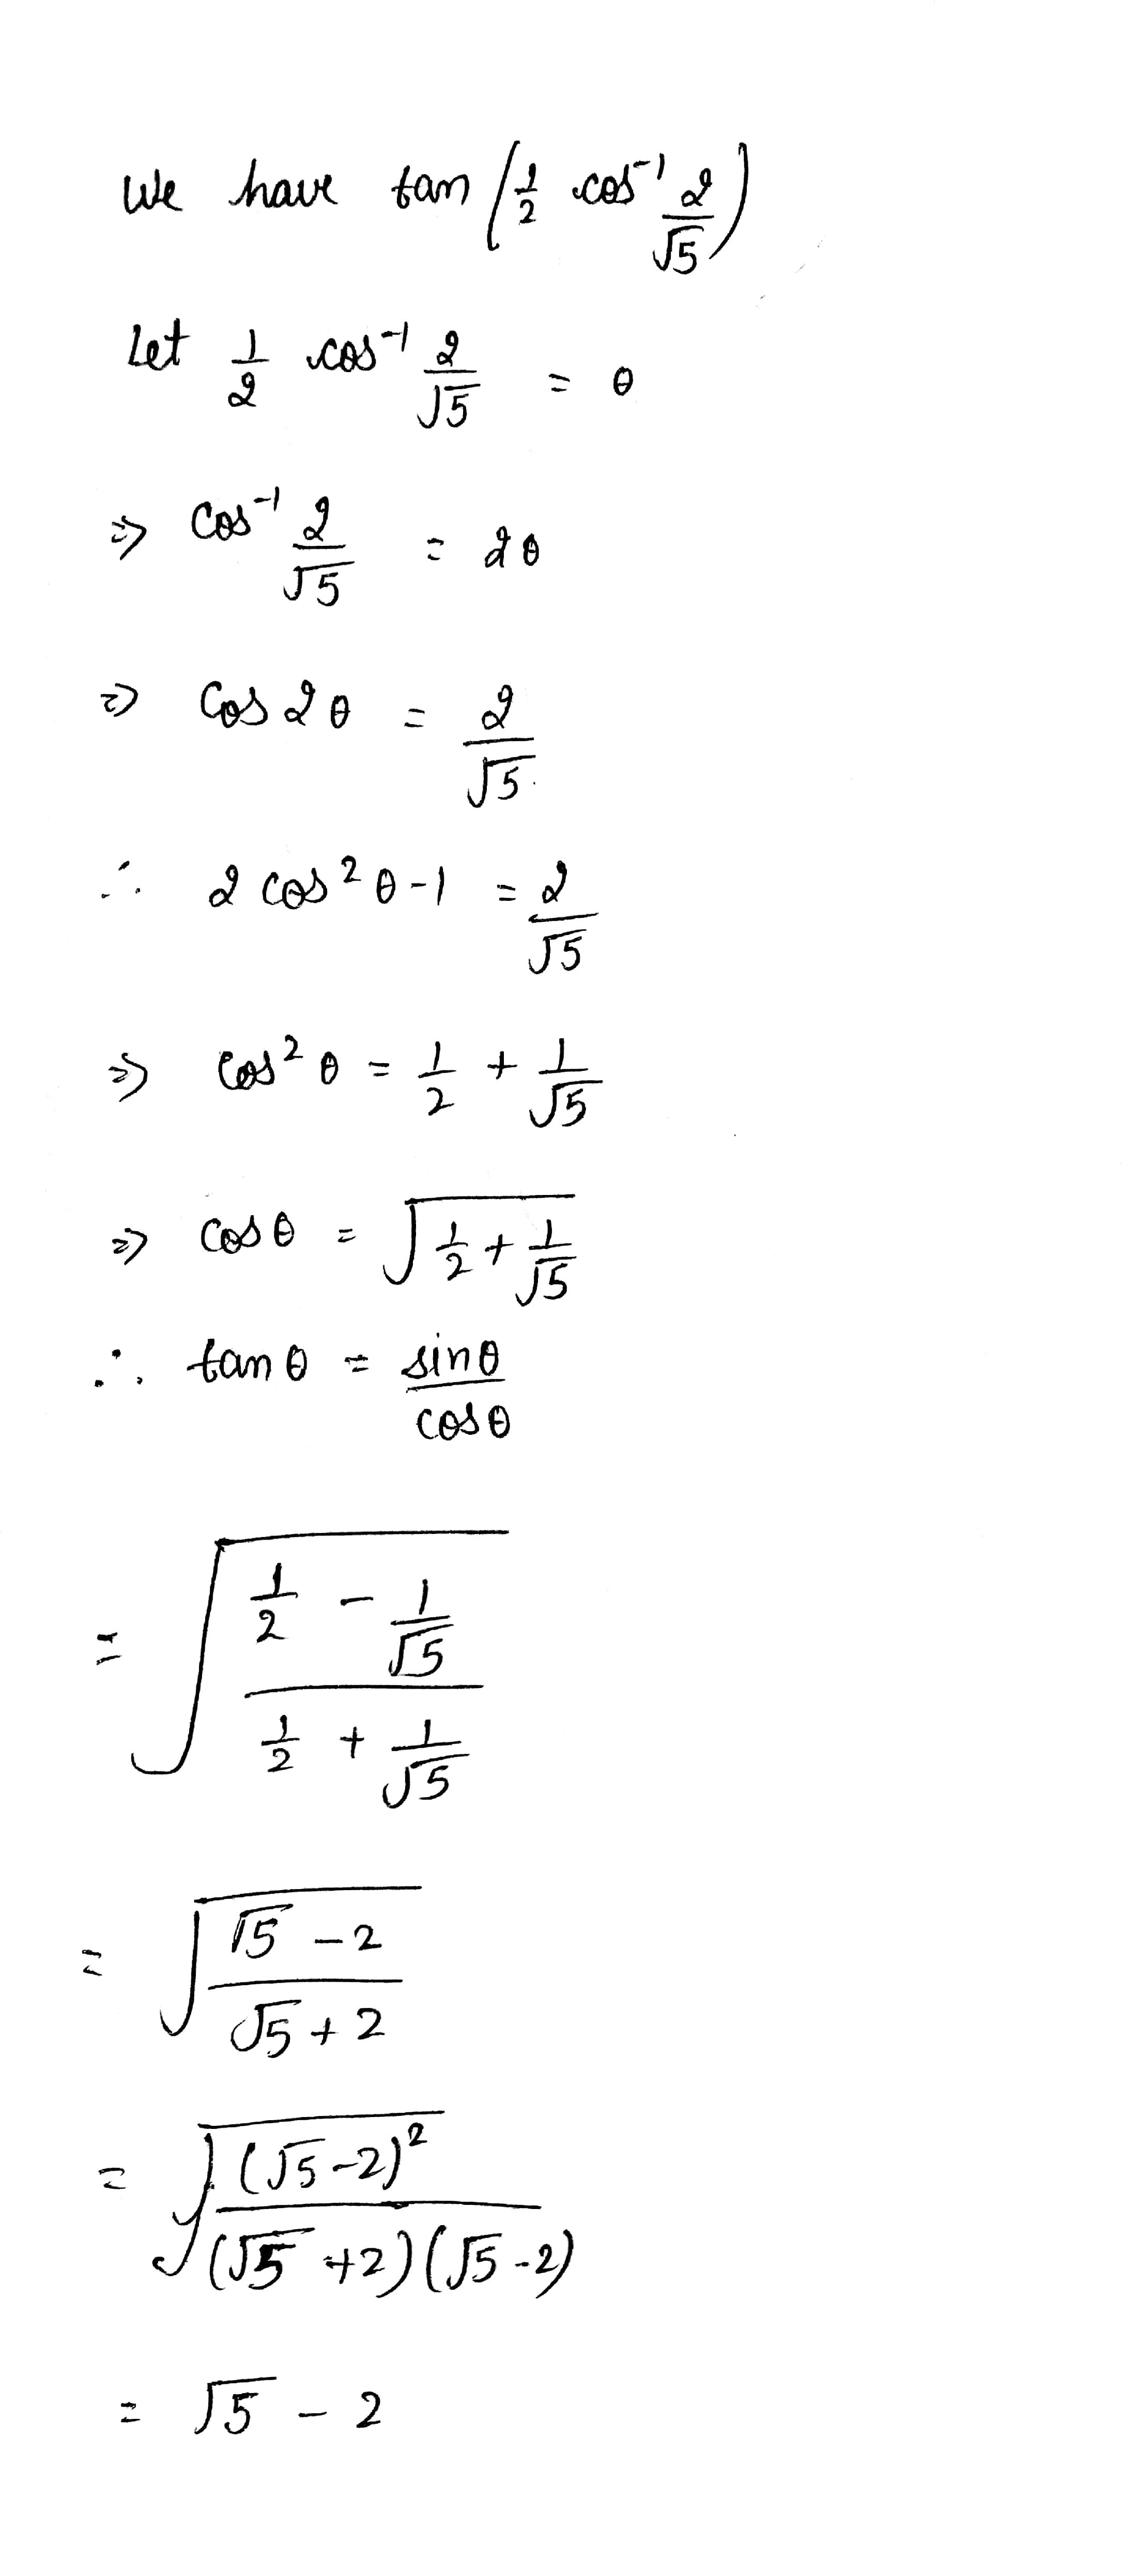 We have tan (1/2 cos⁻¹ 2/√5)
Let 1/2 cos⁻¹ 2/√5 = θ
⇒ cos⁻¹ 2/√5 = 2θ
⇒ Cos 2θ = 2/√5
∴ 2 cos² θ - 1 = 2/√5
⇒ Cos² θ = 1/2 + 1/√5
⇒ cos θ = √(1/2 + 1/√5)
∴ tan θ = sin θ / cos θ
= √((1/2 - 1/√5) / (1/2 + 1/√5))
= √((√5 - 2) / (√5 + 2))
= √((√5 - 2)² / ((√5 + 2)(√5 - 2)))
= √5 - 2